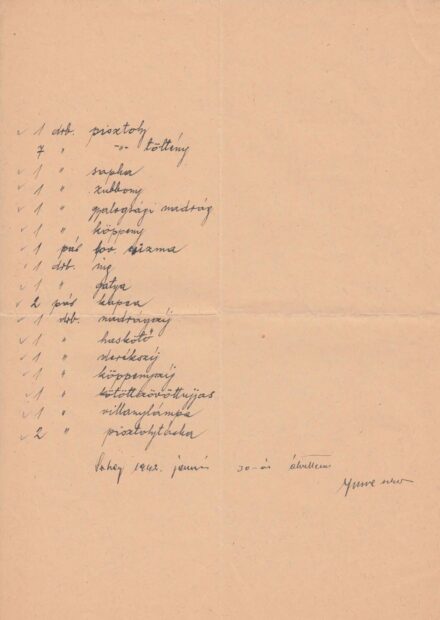 ✓ 1 drb. pisztoly
7 " -"- töltény
✓ 1 " sapka
✓ 1 " zubbony
✓ 1 " gyalogsági nadrág
✓ 1 " köppeny
✓ 1 pár csizma
✓ 1 drb. ing
✓ 1 " gatya
✓ 2 pár kapca
✓ 1 drb. nadrágszíj
✓ 1 " haskötő
✓ 1 " derékszíj
✓ 1 " köppenyszíj
✓ 1 "
✓ 1 " villanylámpa
✓ 2 " pisztolytáska
1942. 30-án átvettem